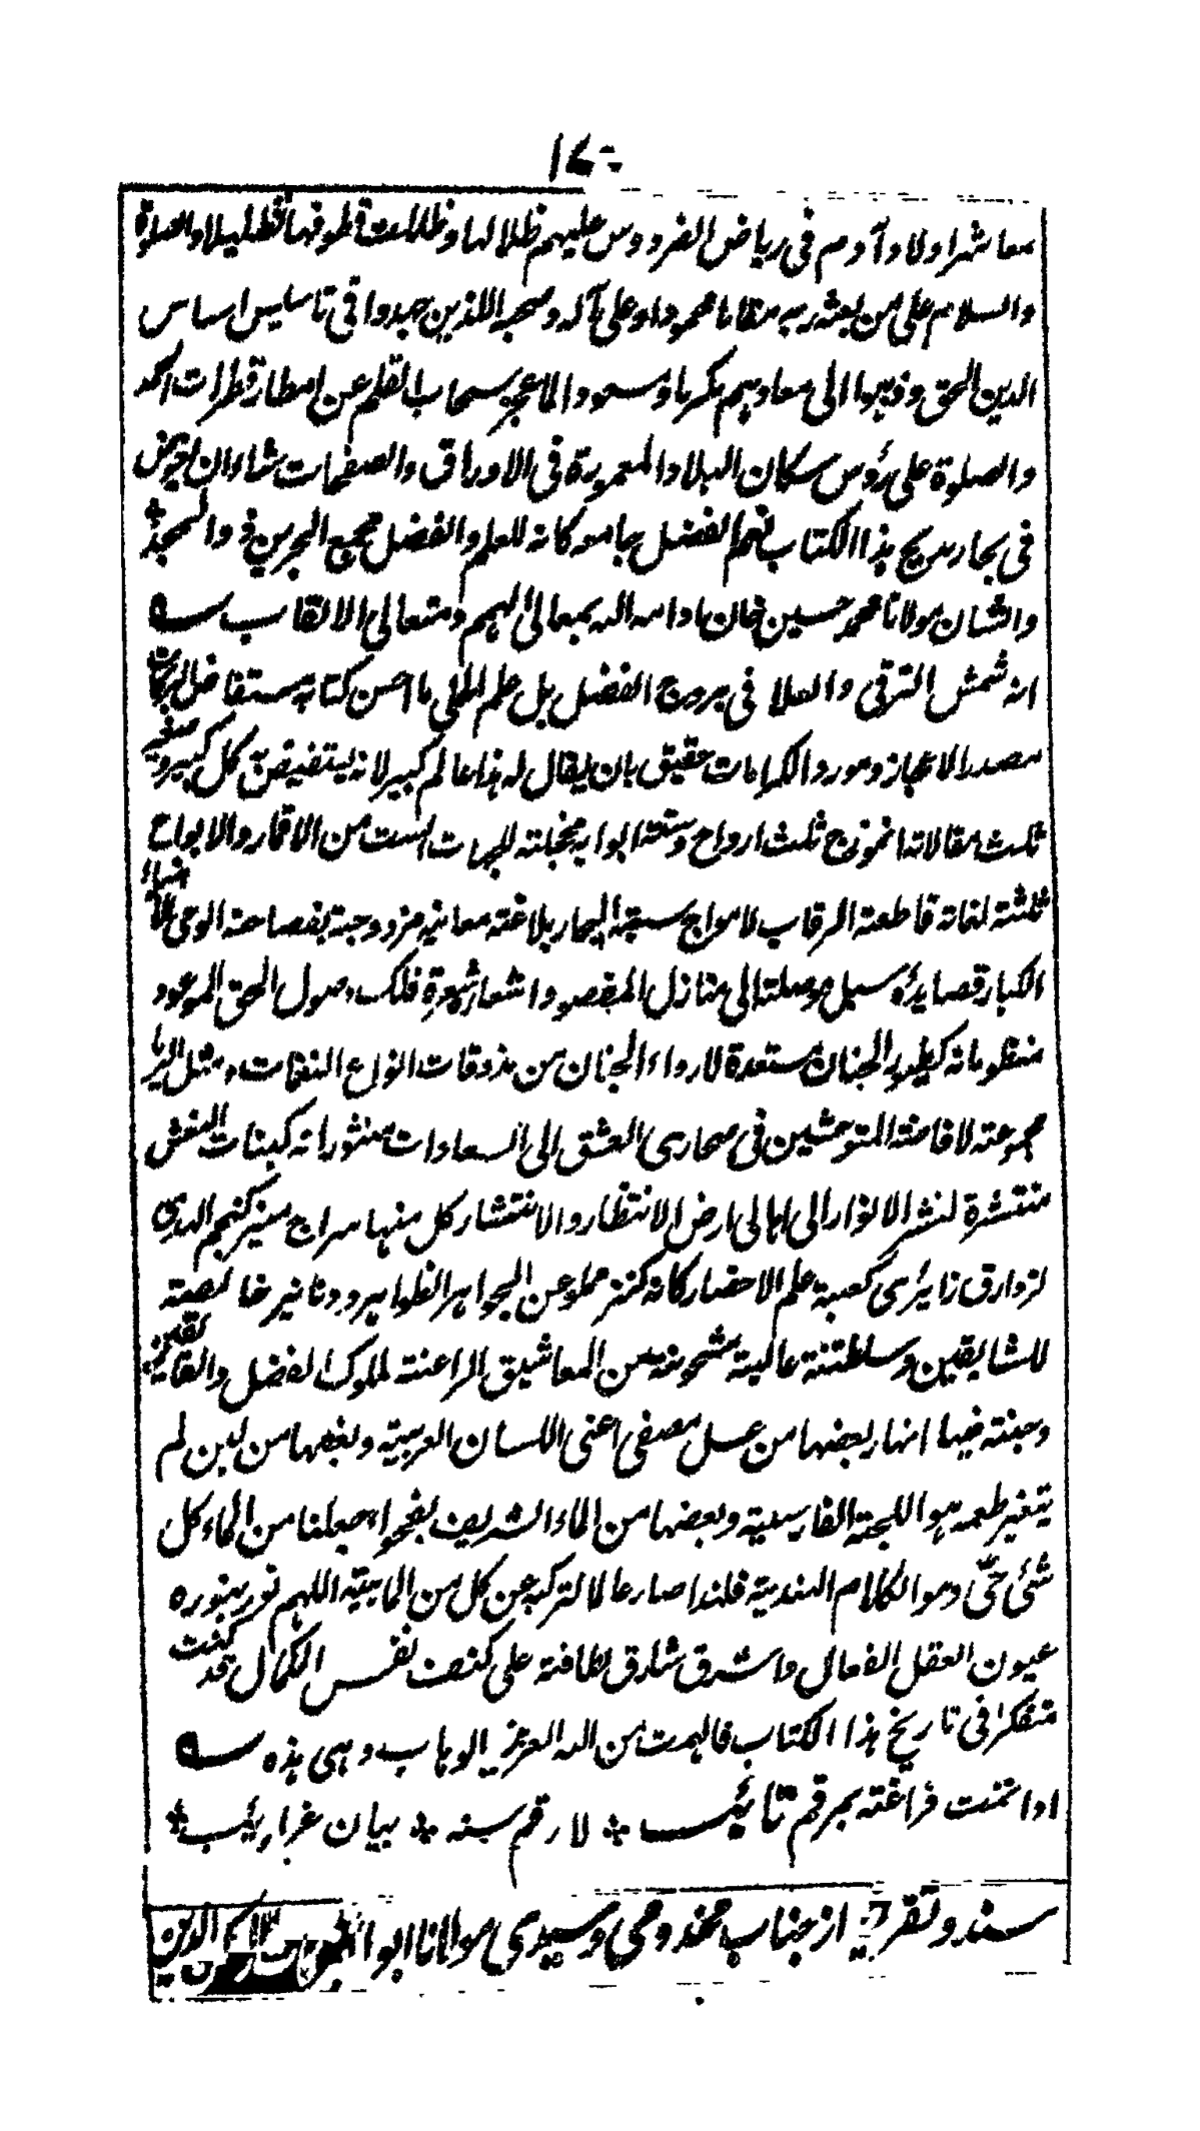 ١٧٠
معاشر اولاد آدم فى رياض الفردوس عليهم ظلالها وظللت قطوفها تظليلا والصلوة
والسلام على من بعثه ربه مقاما محمودا وعلى آله وصحبه اللذين جهدوا فى تاسيس اساس
الدين الحق وذهبوا الى معادهم مكرما ومسعودا لما عجز سحاب القلم عن امطار قطرات الحمد
والصلوة على رؤس سكان البلاد المعمورة فى الاوراق والصفحات شاء ان يخوض
فى بحار مديح هذا الكتاب نعم الفضل جامعه كانه للعلم والفضل مجمع البحرين ذو المجد
والشان مولانا محمد حسين خان ادامه الله بمعالى الهمم ومتعالى الالقاب
انه شمش الترقى والعلا فى بروج الفضل بل علم الملى ما احسن كتابه مستفاض البركات
مصدر الاعجاز ومورد الكرامات حقيق بان يقال له هذا عالم كبير لانه يستفيض كل كبير وصغير
ثلث مقالاته انموذج ثلث ارواح وستة ابوابه مخجلة للجهات الست من الاقمار والابواح
ثلثة لغاته قاطعة الرقاب لامواج سبعة البحار بلاغة معانيه مزدوجة بفصاحة الوحى الانبياء
الكبار قصايده سبيل موصلة الى منازل المقصود اشعار شهرة فلك وصول الحق الموعود
منظوماته كطيور الجنان مستعدة لارواء الجنان من مذوقات انواع النغمات
مجموعته لافاضة المتوحشين فى صحارى العشق الى السعادات منثوراته كبنات النعش
منتشرة لنشر الانوار الى اهالى ارض الانتظار والانتشار كل منها سراج منير كنجم الهدى
لزوارق زايرى كعبة علم الاحضار كانه كنز مملو عن الجواهر الظواهر ودنانير خالصة
للشايقين وسلطنة عالية مشحونة من المعاشيق الراعنة لملوك الفضل والقايقين
وجنة فيها انهار بعضها من عسل مصفى اعنى اللسان العربية وبعضها من لبن لم
يتغير طعمه هو اللهجة الفارسية وبعضها من الماء الشريف بفحواء جعلنا من الماء كل
شئ حىّ وهو الكلام الهندية فلذا صار عالما لتركبه عن كل من الماهية اللهم نور بنوره
عيون العقل الفعال واشرق شارق لطافته على كنف نفس الكمال قد كنت
متفكرا فى تاريخ هذا الكتاب فالهمت من الله العزيز الوهاب وهى هذه
اذا تمت فراغته برقم تائب ٭ لا رقم سنه ٭ بيان غرايب ٭
سند و تقريظ از جناب مخدومى و سيدى مولانا ابو الدين